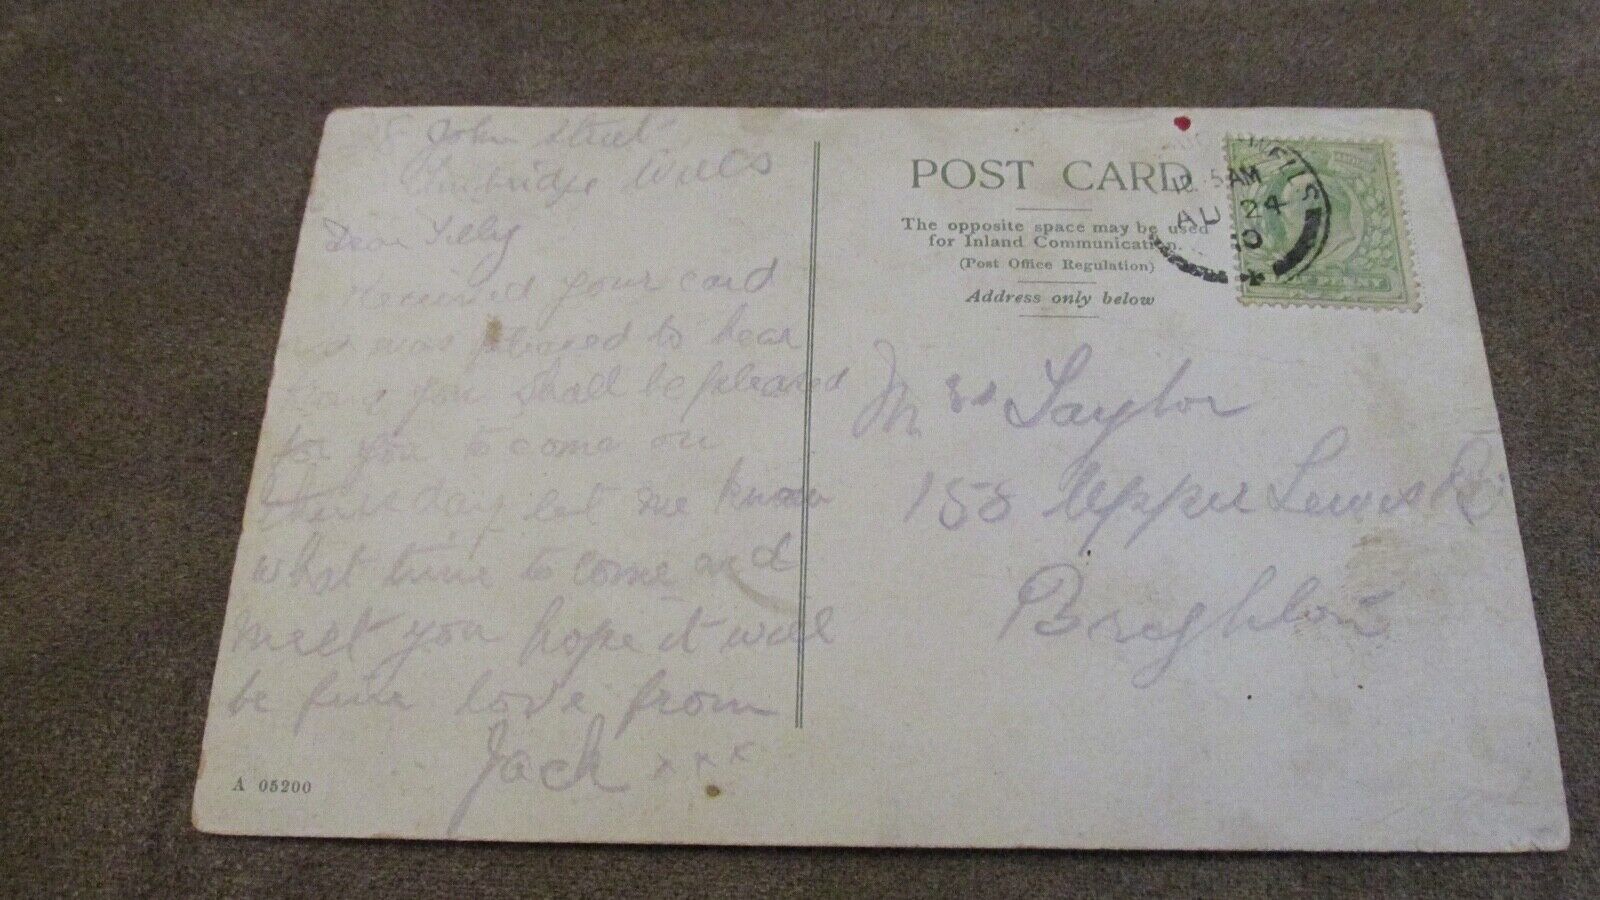 John Street
Tunbridge Wells
Dear Tilly
Received your card
was pleased to hear
you shall be pleased
for you to come on
thursday let me know
what time to come and
meet you hope it will
be fine love from
Jack x x x
A 05200
POST CARD
The opposite space may be used
for Inland Communication.
(Post Office Regulation)
Address only below
WELLS
AM
AU 24
10
PENNY
Mrs Taylor
158 Upper Lewis Rd
Brighton